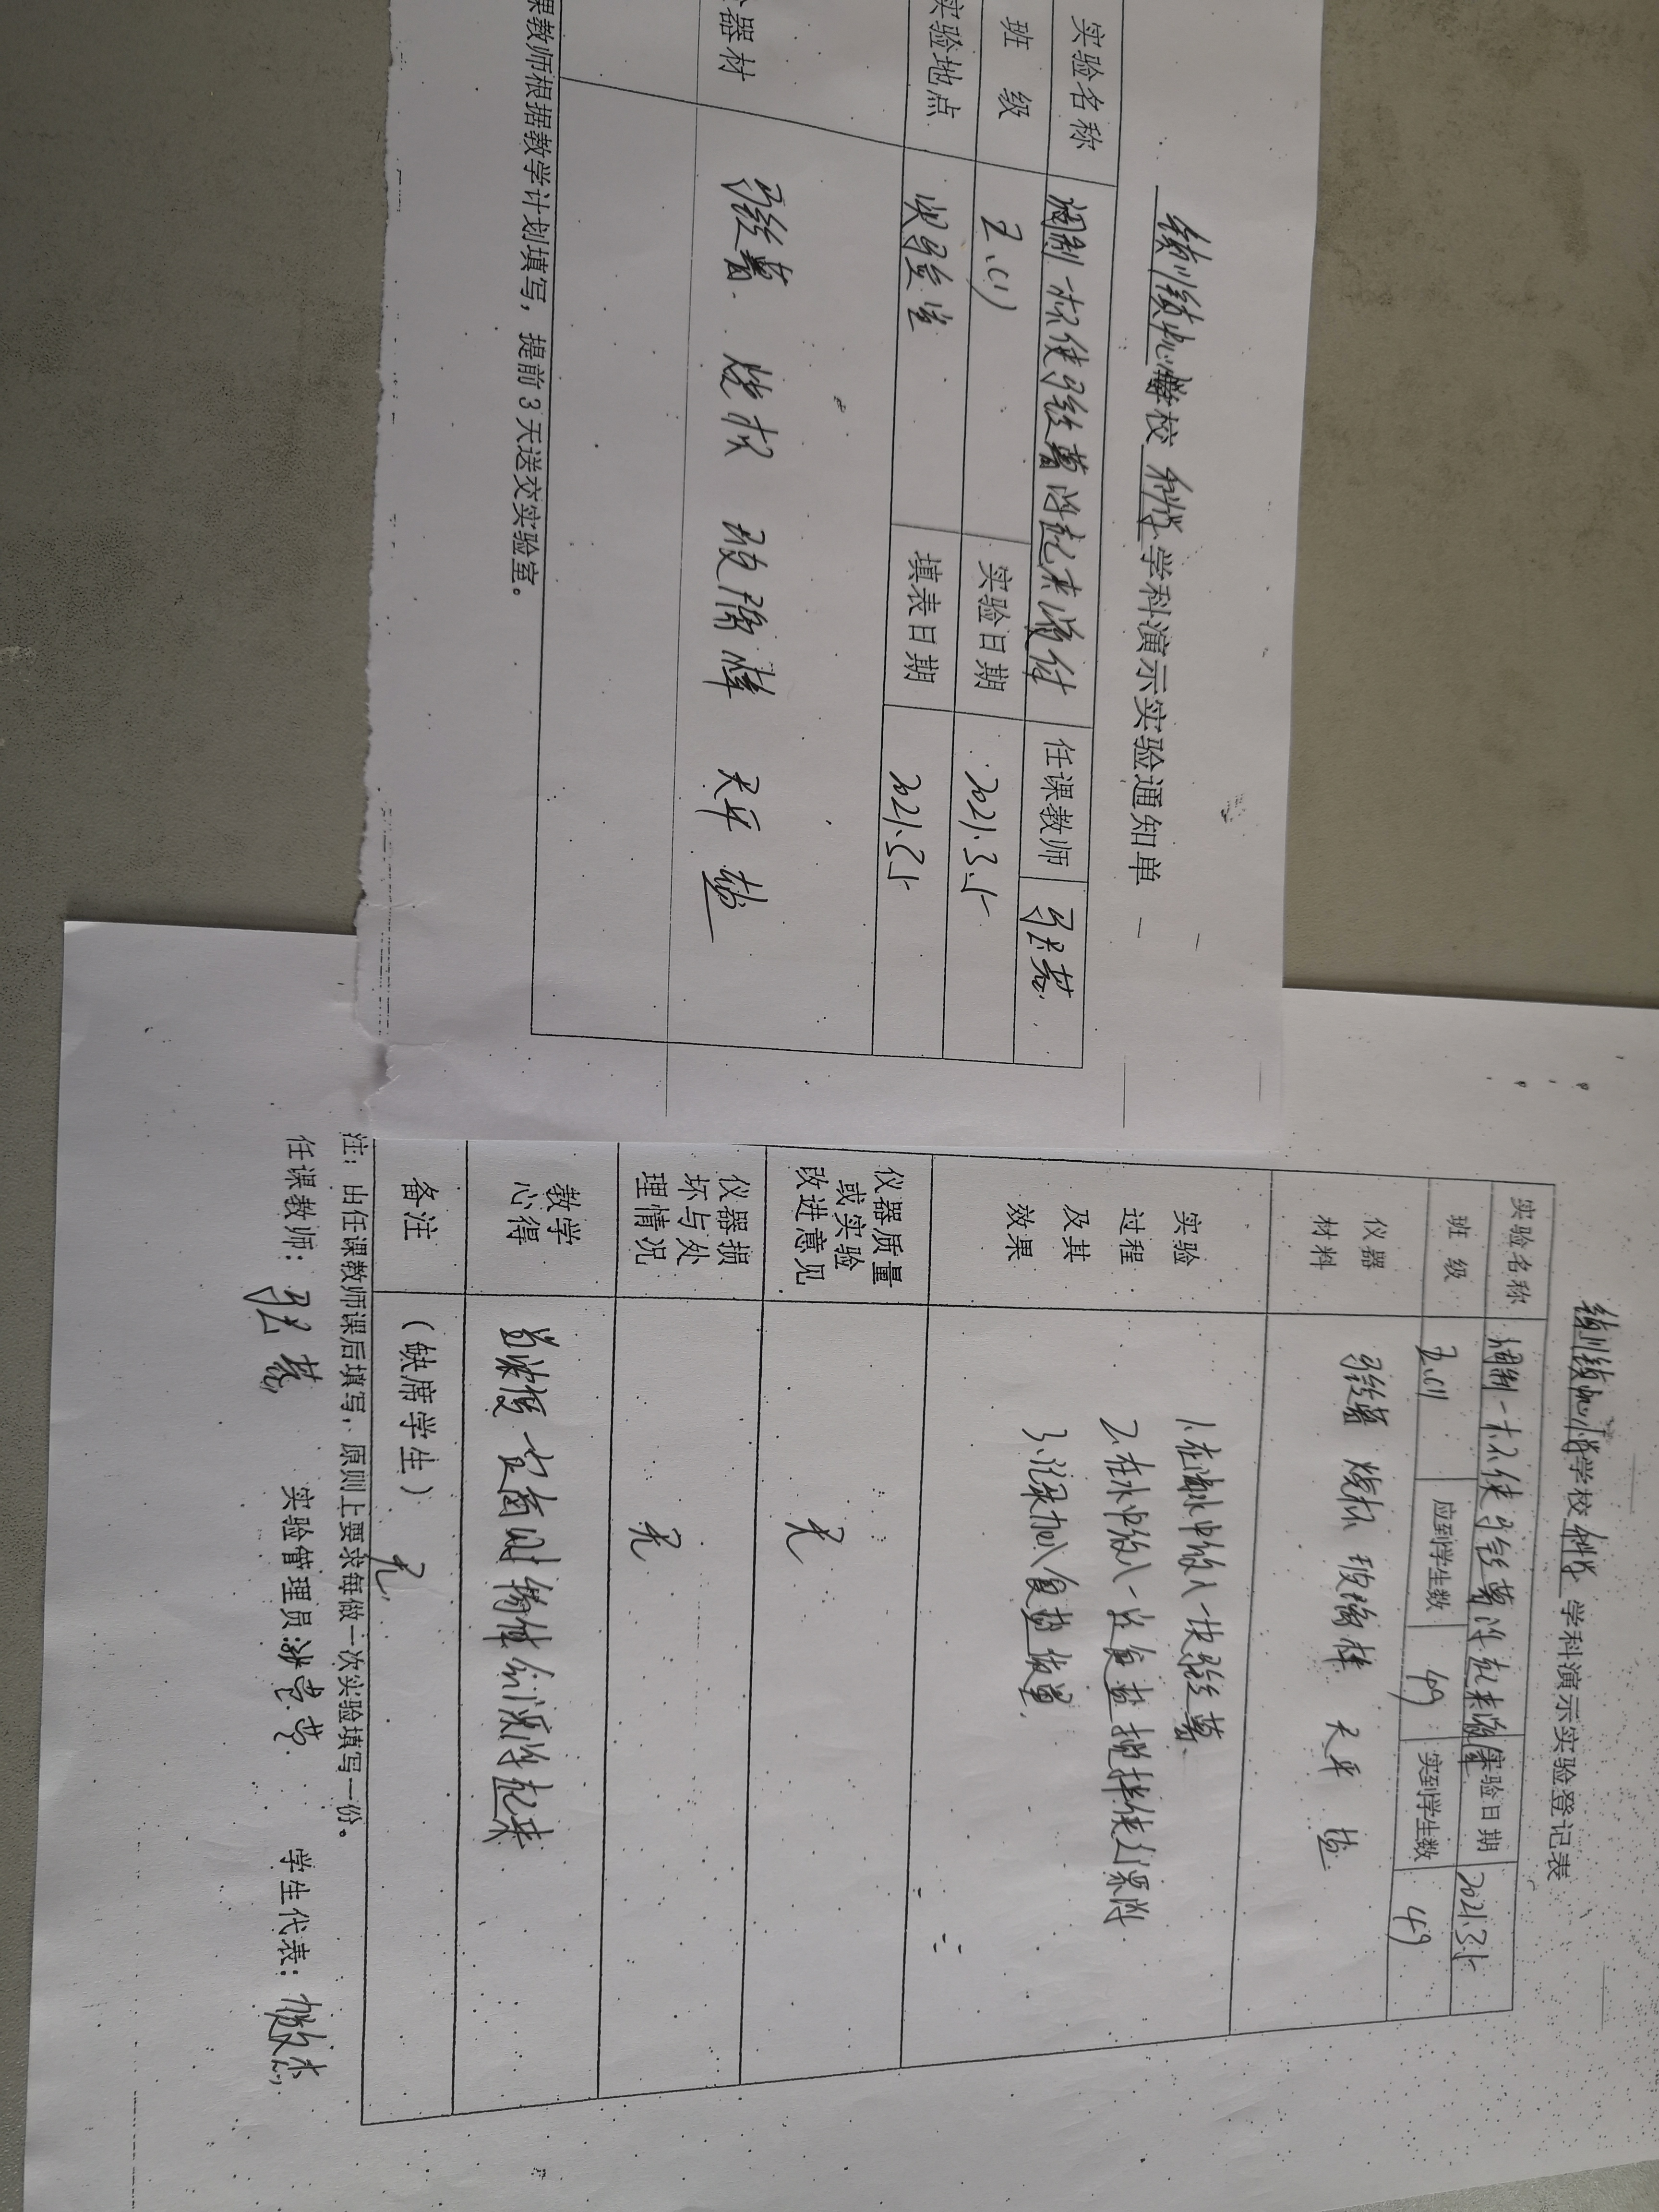 绣川镇中心小学学校 科学 学科演示实验通知单
实验名称 调制一杯使马铃薯浮起来液体 任课教师
班 级 五.(1) 实验日期 2021.3.5
实验地点 实验室 填表日期 2021.3.5
器材 马铃薯 烧杯 玻璃棒 天平 盐
课教师根据教学计划填写，提前3天送交实验室。
绣川镇中心小学学校 科学 学科演示实验登记表
实验名称 调制一杯使马铃薯浮起来液体 实验日期 2021.3.5
班 级 五.(1) 应到学生数 49 实到学生数 49
仪器材料 马铃薯 烧杯 玻璃棒 天平 盐
实验过程及其效果
1.在清水中放入一块马铃薯
2.在水中放入一些食盐搅拌使之溶解
3.记录加入食盐数量.
仪器质量或实验改进意见 无
仪器损坏与处理情况 无
教学心得 当浓度 更高时 物体会漂浮起来
备注 （缺席学生） 无
注：由任课教师课后填写，原则上要求每做一次实验填写一份。
任课教师： 实验管理员: 学生代表：